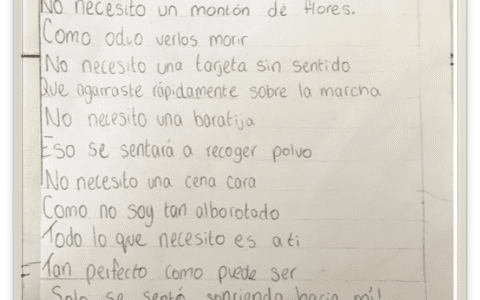 No necesito un montón de flores.
Como odio verlos morir
No necesito una tarjeta sin sentido
Que agarraste rápidamente sobre la marcha
No necesito una baratija
Eso se sentará a recoger polvo
No necesito una cena cara
Como no soy tan alborotado
Todo lo que necesito es a ti
Tan perfecto como puede ser
Solo se sentó sonriendo hacia mí!